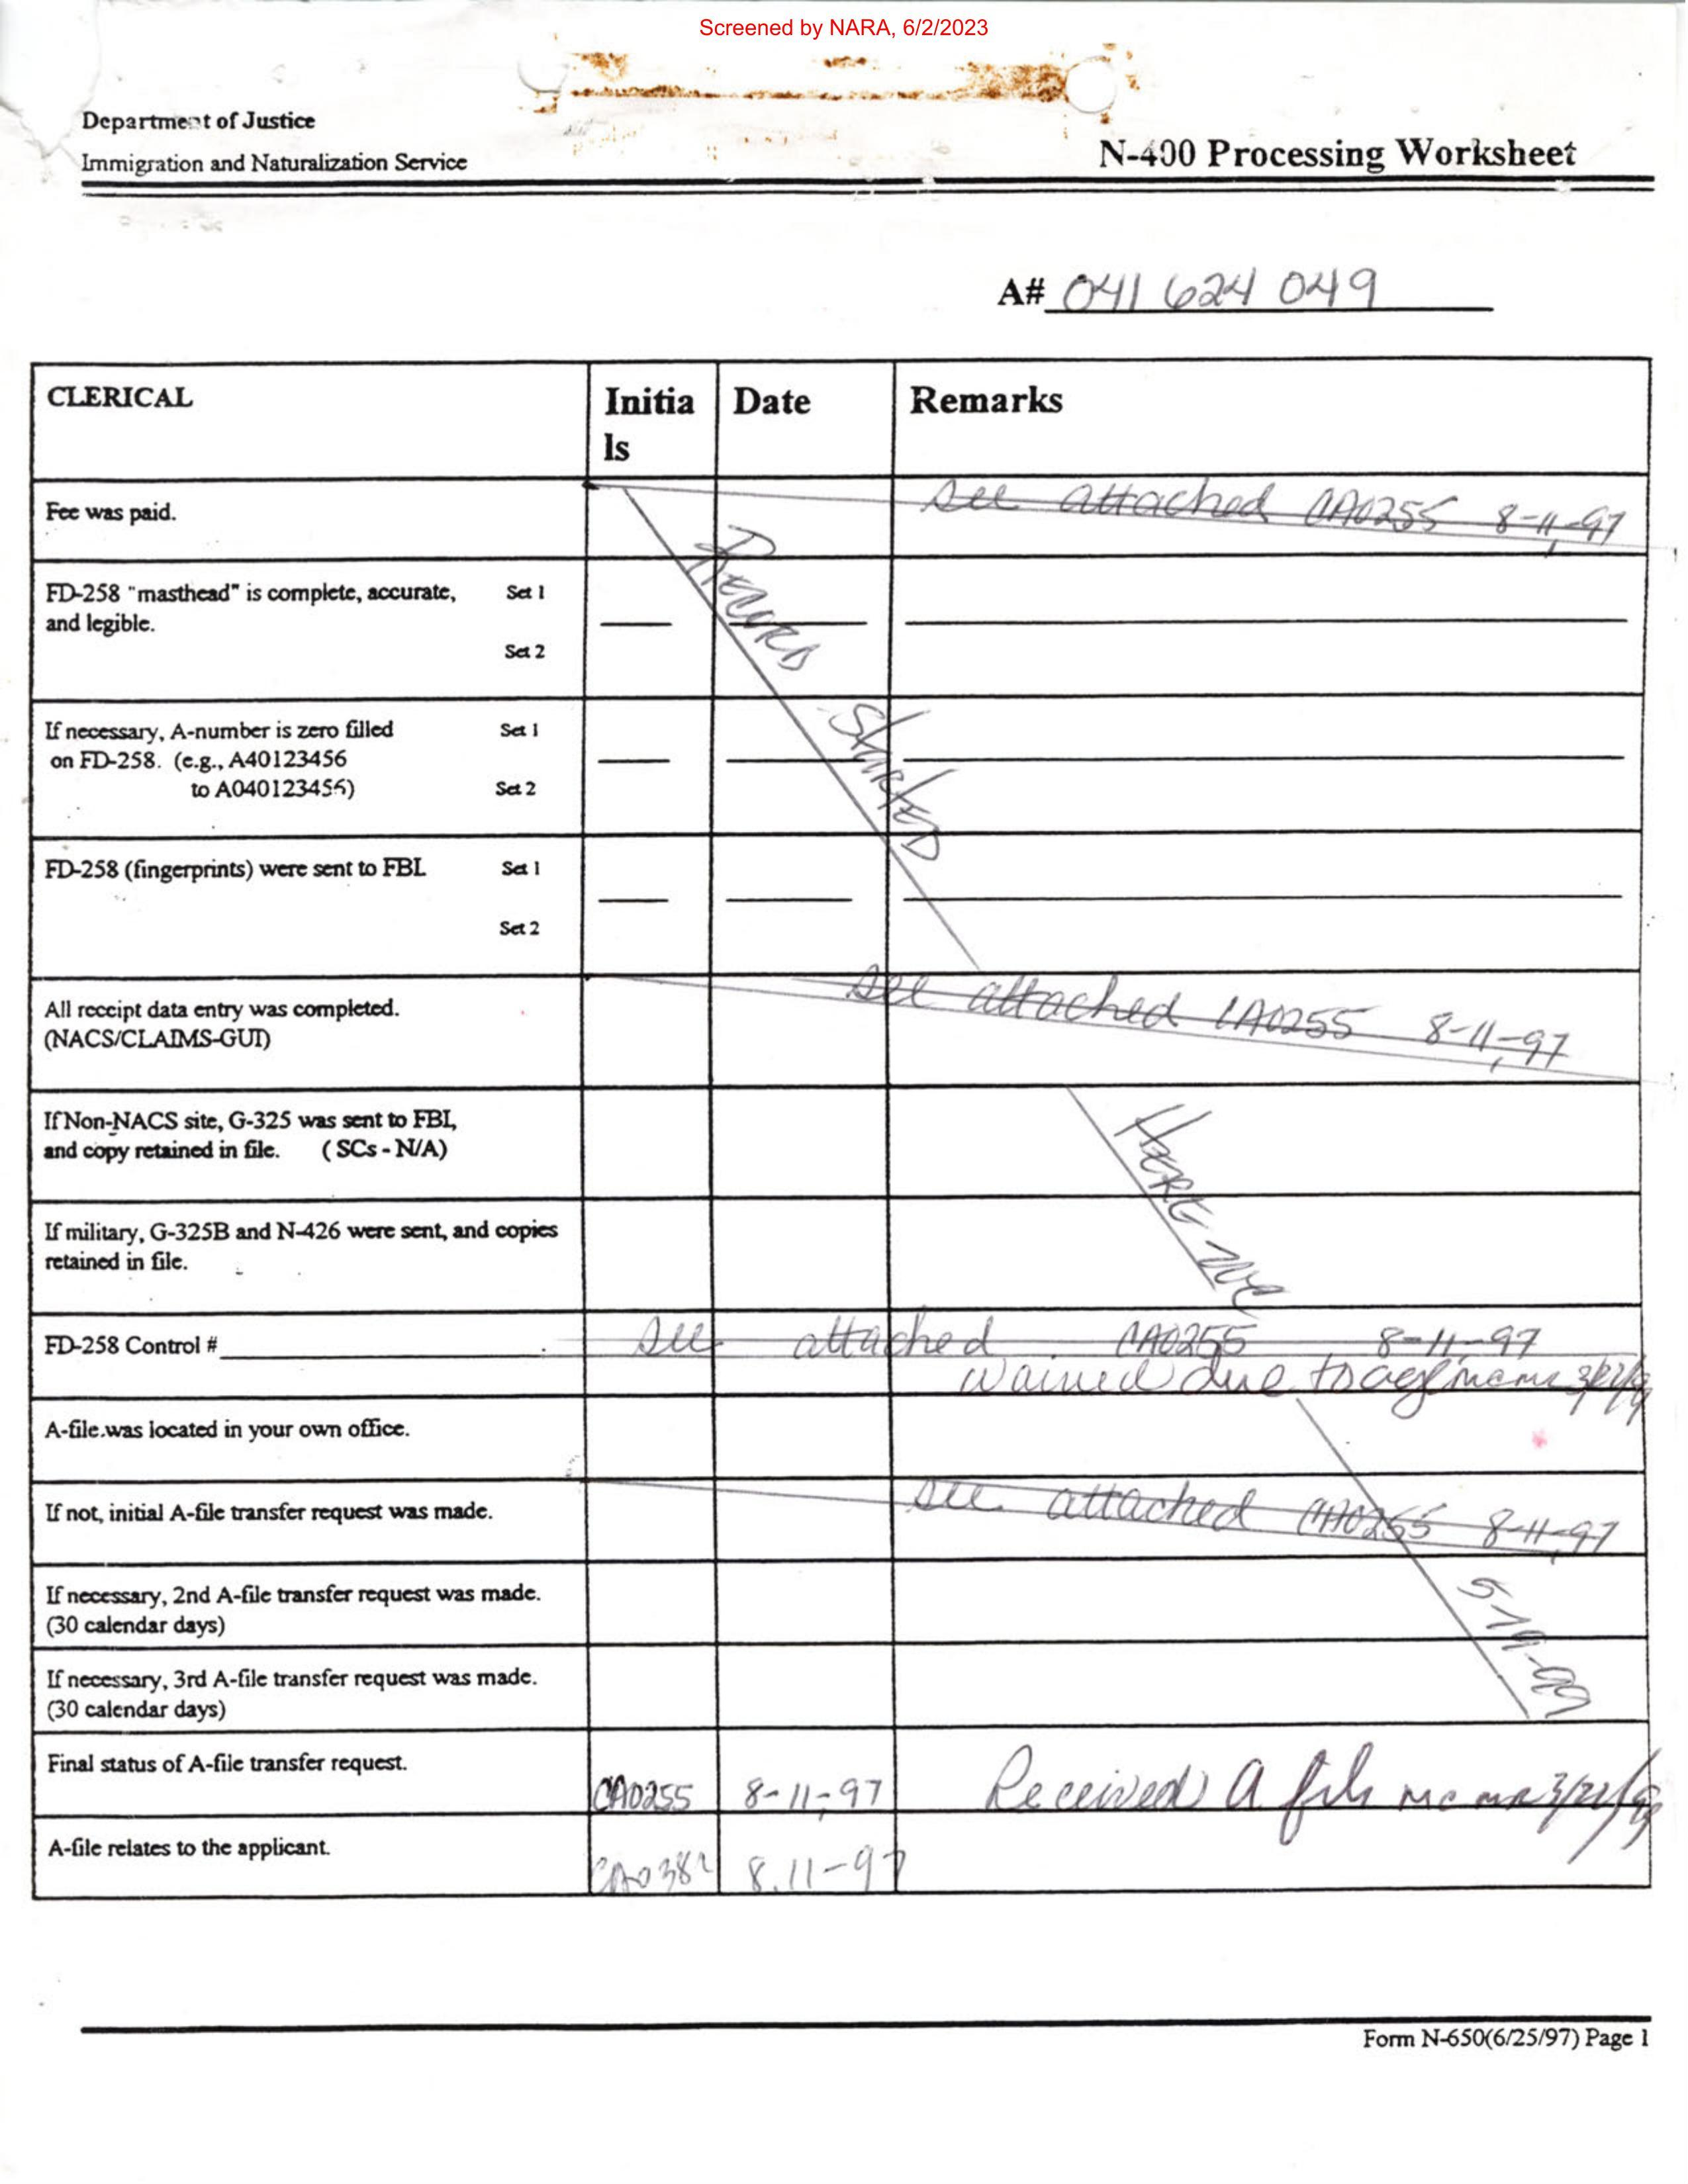 Screened by NARA, 6/2/2023
Department of Justice
Immigration and Naturalization Service
N-400 Processing Worksheet
A# 041 624 049
CLERICAL
Initia
ls
Date
Remarks
Fee was paid.
See attached CA0255 8-11-97
FD-258 "masthead" is complete, accurate,
and legible.
Set 1
Set 2
If necessary, A-number is zero filled
on FD-258. (e.g., A40123456
to A040123456)
Set 1
Set 2
Started
FD-258 (fingerprints) were sent to FBI.
Set 1
Set 2
All receipt data entry was completed.
(NACS/CLAIMS-GUI)
See attached CA0255 8-11-97
If Non-NACS site, G-325 was sent to FBI,
and copy retained in file. (SCs - N/A)
If military, G-325B and N-426 were sent, and copies
retained in file.
FD-258 Control #
See attached CA0255 8-11-97
waived due to age
A-file was located in your own office.
If not, initial A-file transfer request was made.
See attached CA0255 8-11-97
If necessary, 2nd A-file transfer request was made.
(30 calendar days)
If necessary, 3rd A-file transfer request was made.
(30 calendar days)
Final status of A-file transfer request.
CA0255 8-11-97 Received A file
A-file relates to the applicant.
8-11-97
Form N-650(6/25/97) Page 1